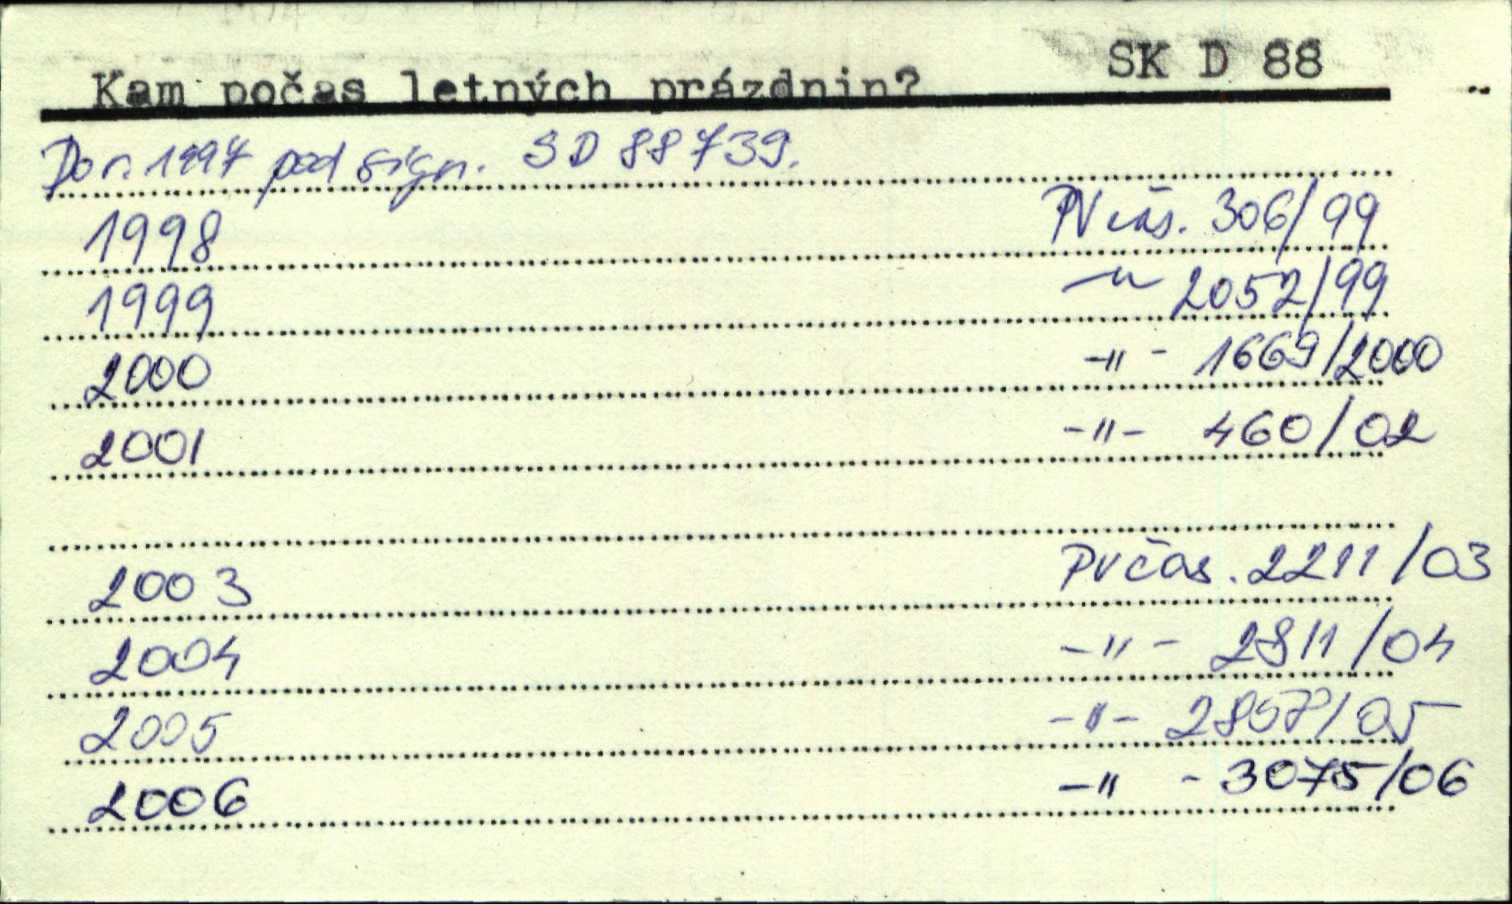 Kam počas letných prázdnin? SK D 88
Do r. 1997 pod sign. SD 88739.
1998 PV čas. 306/99
1999 -"- 2052/99
2000 -"- 1669/2000
2001 -"- 460/02
2003 PV čas. 2211/03
2004 -"- 2811/04
2005 -"- 2857/05
2006 -"- 3075/06